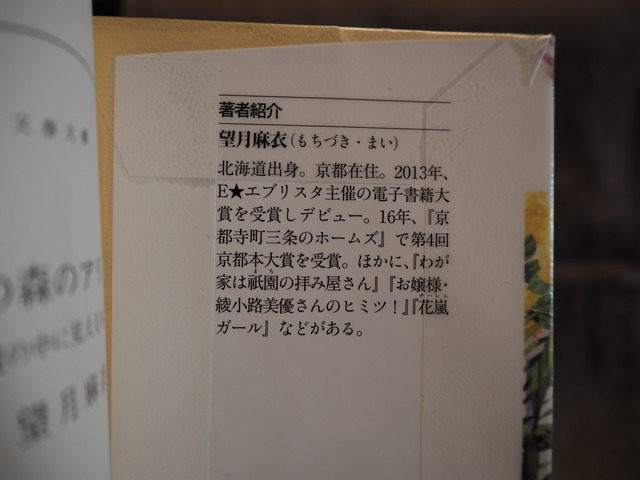 著者紹介
望月麻衣（もちづき・まい）
北海道出身。京都在住。2013年、
E★エブリスタ主催の電子書籍大
賞を受賞しデビュー。16年、『京
都寺町三条のホームズ』で第4回
京都本大賞を受賞。ほかに、『わが
家は祇園の拝み屋さん』『お嬢様・
綾小路美優さんのヒミツ！』『花嵐
ガール』などがある。
文春文庫
の森のア
望月麻